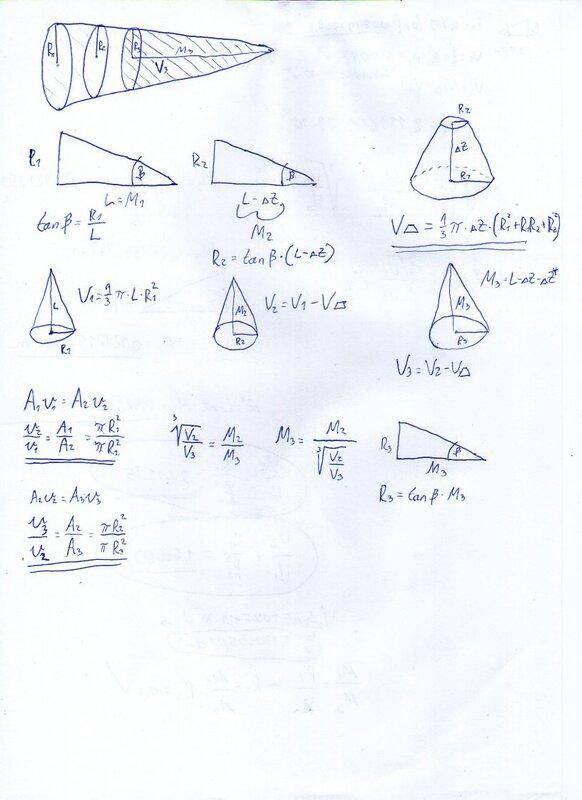 R1 R2 R3 M3
V3
R1
β
L=M1
R2
β
L-ΔZ
M2
R2
ΔZ
R1
tan β = R1/L
R2 = tan β · (L-ΔZ)
VΔ = 1/3 π · ΔZ · (R1²+R1R2+R2²)
L
R1
V1 = 1/3 π · L · R1²
M2
R2
V2 = V1 - VΔ
M3
R3
M3 = L-ΔZ-ΔZ*
V3 = V2 - VΔ
A1 v1 = A2 v2
v2/v1 = A1/A2 = πR1²/πR2²
∛(V2/V3) = M2/M3
M3 = M2/∛(V2/V3)
R3
β
M3
R3 = tan β · M3
A2 v2 = A3 v3
v3/v2 = A2/A3 = πR2²/πR3²